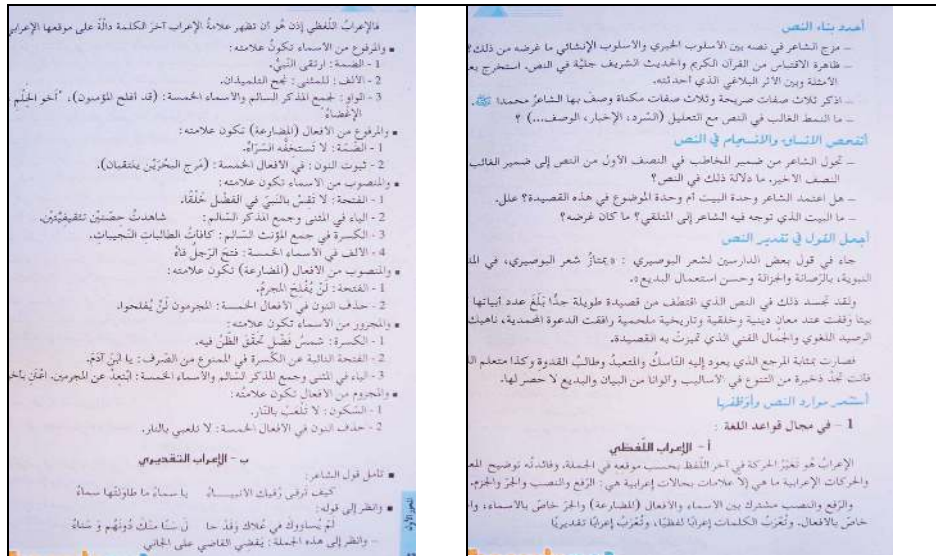 أحدد بناء النص
– مزج الشاعر في نصه بين الأسلوب الخبري والأسلوب الإنشائي ما غرضه من ذلك؟
– ظاهرة الاقتباس من القرآن الكريم والحديث الشريف جليّة في النص. استخرج
الأمثلة وبين الأثر البلاغي الذي أحدثته.
– اذكر ثلاث صفات صريحة وثلاث صفات مكناة وصف بها الشاعر محمدا ﷺ.
– ما النمط الغالب في النص مع التعليل (السّرد، الإخبار، الوصف...) ؟
أتفحص الاتساق والانسجام في النص
– تحول الشاعر من ضمير المخاطب في النصف الأول من النص إلى ضمير الغائب
النصف الأخير. ما دلالة ذلك في النص؟
– هل اعتمد الشاعر وحدة البيت أم وحدة الموضوع في هذه القصيدة؟ علل.
– ما البيت الذي توجه فيه الشاعر إلى المتلقي؟ ما كان غرضه؟
أجمل القول في تقدير النص
جاء في قول بعض الدارسين لشعر البوصيري : «يمتاز شعر البوصيري، في
النبوية، بالرّصانة والجزالة وحسن استعمال البديع».
ولقد تجسد ذلك في النص الذي اقتطف من قصيدة طويلة جدّا بَلَغَ عدد أبياتها
بيتا وقفت عند معان دينية وخلقية وتاريخية ملحمية رافقت الدعوة المحمدية، ناهيك
الرصيد اللغوي والجمال الفني الذي تميزتْ به القصيدة.
فصارت بمثابة المرجع الذي يعود إليه النّاسكُ والمتعبدُ وطالبُ القدوة وكذا متعلم
فأنت تجدُ ذخيرة من التنوع في الأساليب وألوانا من البيان والبديع لا حصر لها.
أستثمر موارد النص وأوظفها
1 – في مجال قواعد اللغة :
أ – الإعراب اللّفظي
الإعرابُ هُو تَغيّرُ الحركة في آخر اللّفظ بحسب موقعه في الجملة. وفائدتُه توضيح
والحركات الإعرابية ما هي إلّا علامات بحالات إعرابية هي: الرّفع والنصب والجرّ والجزم.
والرّفع والنصب مشترك بين الأسماء والأفعال (المضارعة) والجرّ خاصّ بالأسماء،
خاصّ بالأفعال. وتُعْرَبُ الكلمات إعرابًا لفظيّا، وتُعْرَبُ إعرابًا تقديريًا
فالإعرابُ اللّفظي إذن هُو أن تظهر علامةُ الإعراب آخرَ الكلمة دالّةً على موقعها الإعرابي
والمرفوع من الأسماء تكونُ علامته:
1 - الضمة: ارتقى النّبيُّ.
2 - الألف : للمثنى: نجح التلميذان.
3 - الواو : لجمع المذكر السالم والأسماء الخمسة: (قد أفلح المؤمنون)، "أخو الحِلْمِ
الإغضاءُ"
والمرفوع من الأفعال (المضارعة) تكون علامته:
1 - الضّمّة: لا تَستخفُّه السّرّاءُ.
2 - ثبوت النون : في الأفعال الخمسة: (مَرج البحْرَيْن يلتقيان).
والمنصوب من الأسماء تكون علامته:
1 - الفتحة : لا تَقسْ بالنبيّ في الفضْل خَلْقًا.
2 - الياء في المثنى وجمع المذكر السالم: شاهدتُ حصّتيْن تثقيفيّتيْن.
3 - الكسرة في جمع المؤنث السّالم: كافأتُ الطالباتِ النّجيباتِ.
4 - الألف في الأسماء الخمسة: فتحَ الرّجلُ فاهُ
والمنصوب من الأفعال (المضارعة) تكون علامته:
1 - الفتحة: لَنْ يُفْلِحَ المجرمُ.
2 - حذف النون في الأفعال الخمسة: المجرمون لَنْ يُفلحوا.
والمجرور من الأسماء تكون علامته:
1 - الكسرة: شمسُ فَضْلٍ تحقّقَ الظّنُّ فيه.
2 - الفتحة النائبة عن الكَسرة في الممنوع من الصّرف: يا ابْنَ آدَمَ.
3 - الياء في المثنى وجمع المذكر السّالم والأسماء الخمسة: ابْتعدْ عن المجرمين.
والمجزوم من الأفعال تكون علامتُه:
1 - السّكون: لا تَلْعَبْ بالنّار.
2 - حذف النون في الأفعال الخمسة: لا تلعبي بالنار.
ب - الإعراب التقديري
تأمل قول الشاعر:
كيف تَرقى رُقيك الأنبيـــاءُ يا سماءً ما طاوَلَتْها سماءُ
وانظر إلى قوله:
لَمْ يُساووكَ في عُلاكَ وَقَدْ حا لَ سَنًا مِنْكَ دُونَهُم وَ سَناءُ
– وانظر إلى هذه الجملة: يَقضي القاضي على الجاني